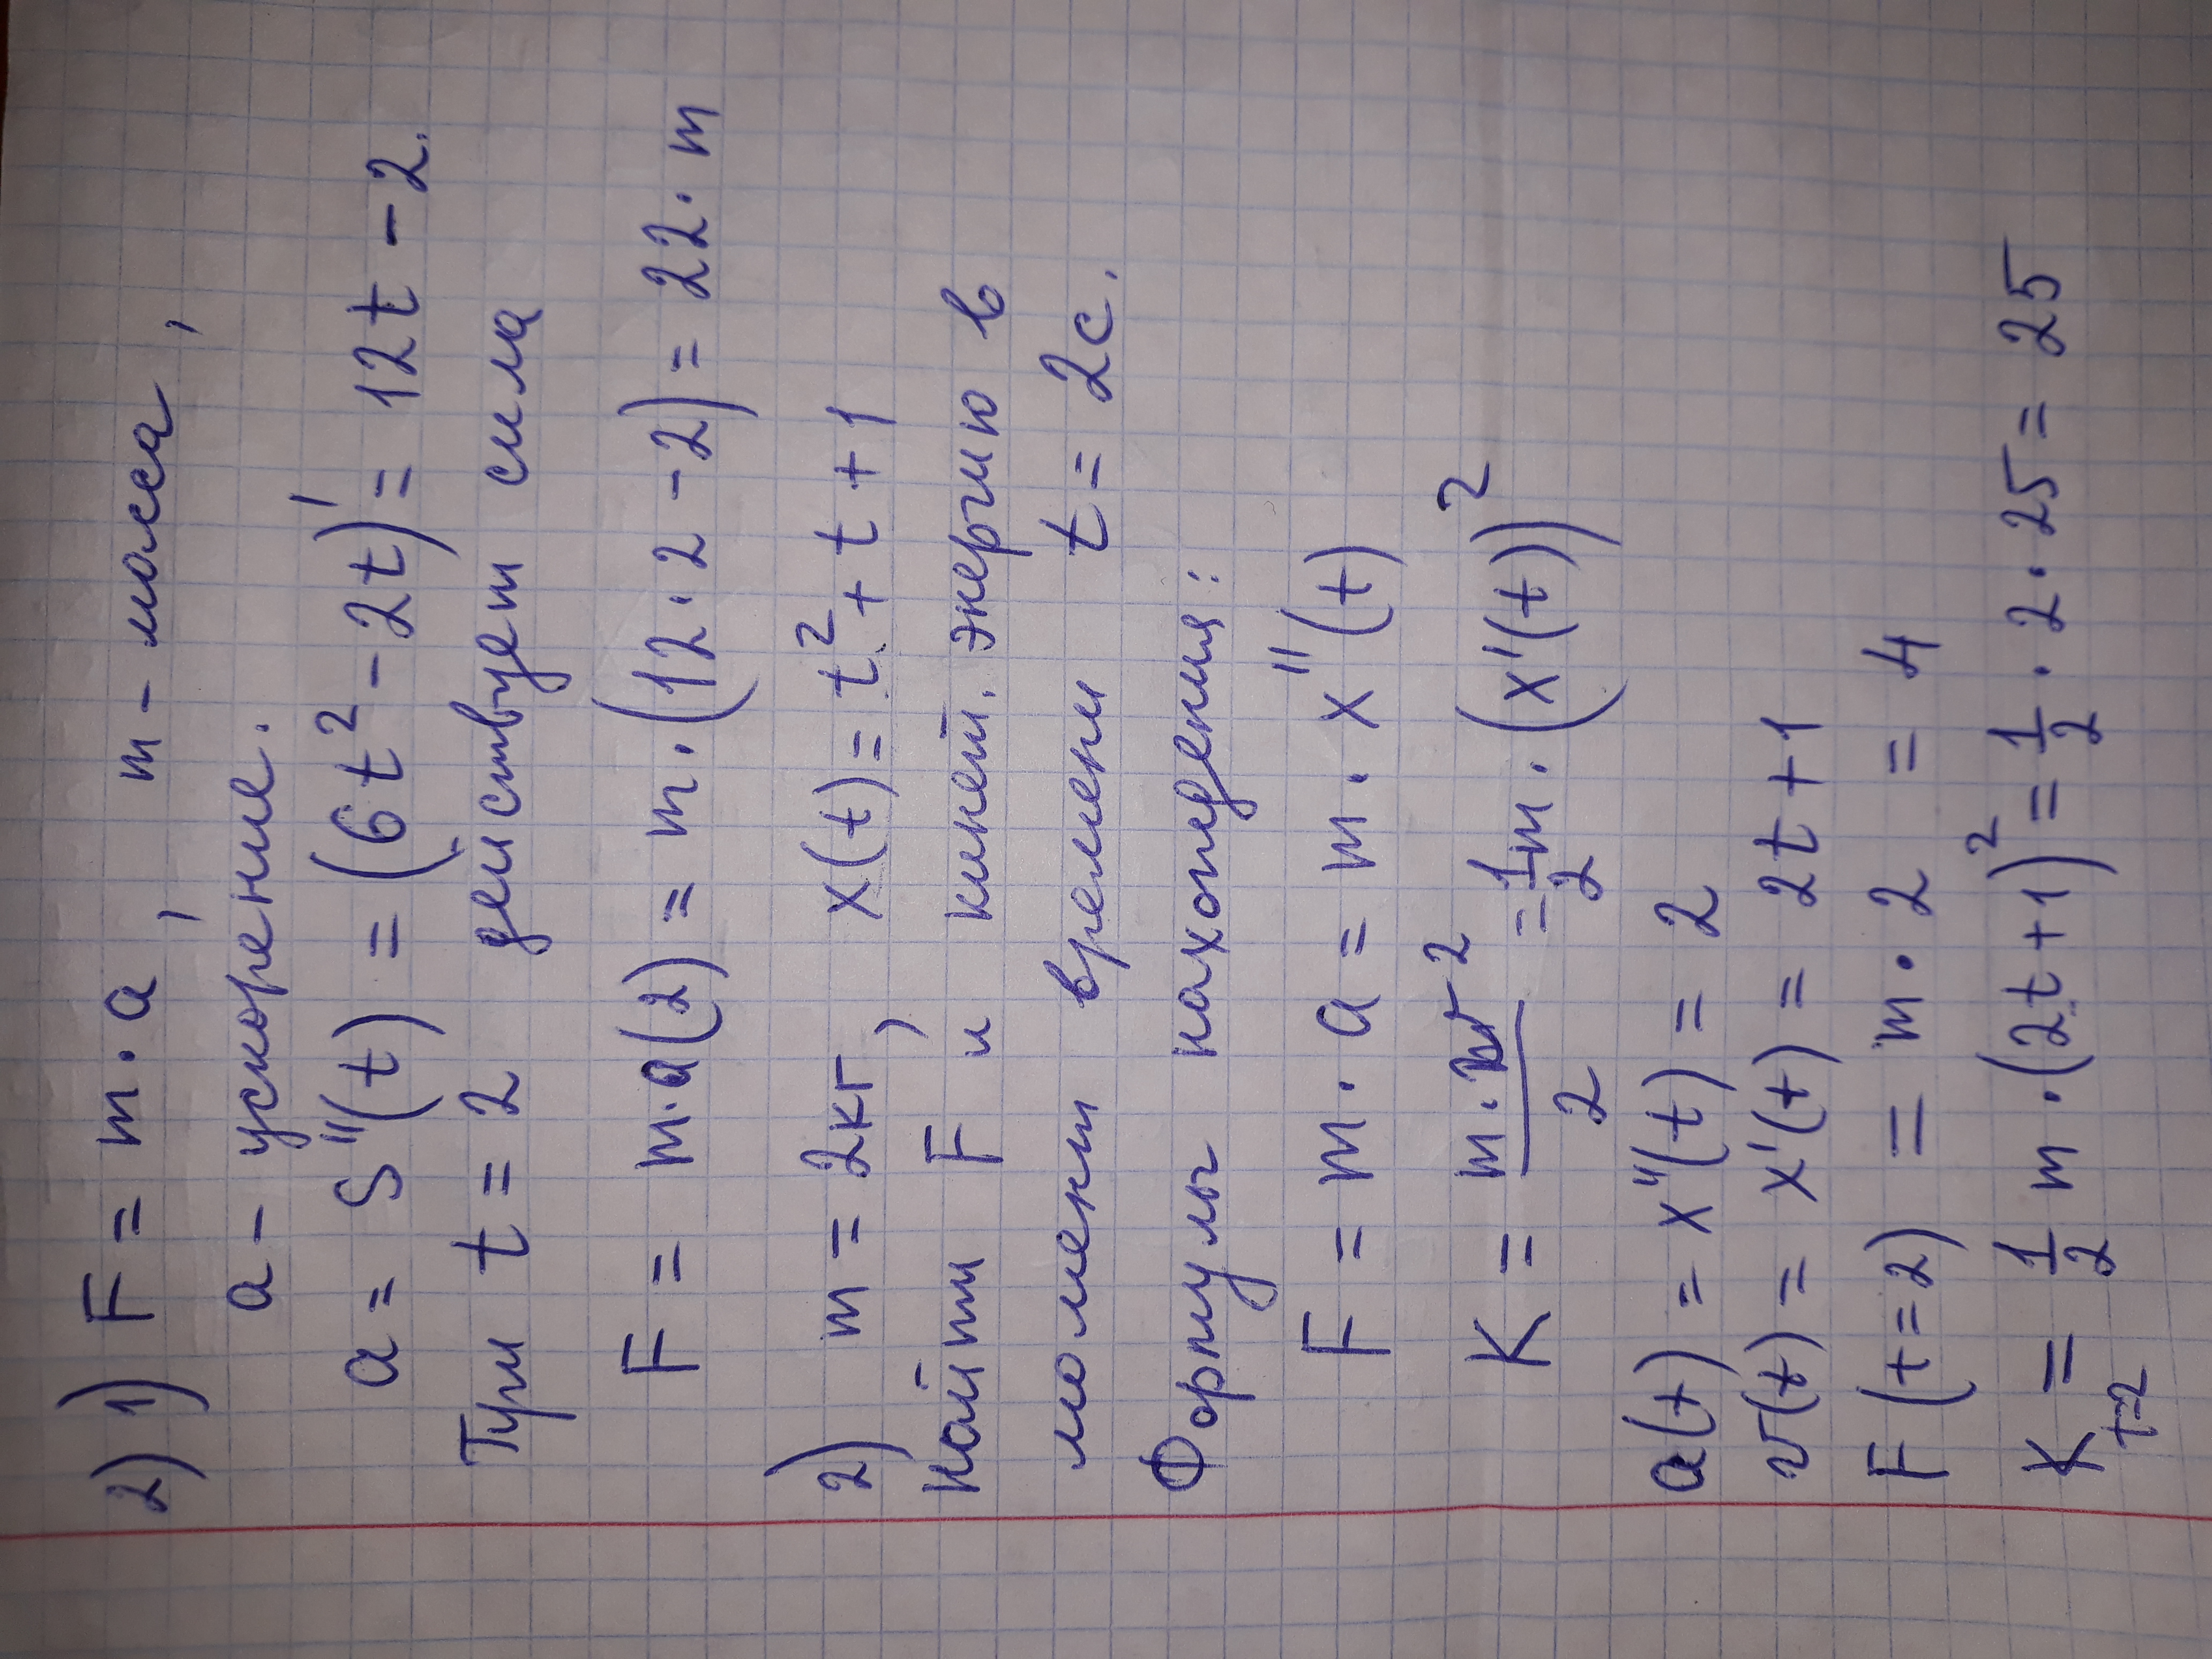 2) 1) F = m · a, m - масса,
a - ускорение.
a = S''(t) = (6t² - 2t)' = 12t - 2.
При t = 2 действует сила
F = m·a(2) = m·(12·2 - 2) = 22·m
2) m = 2кг, x(t) = t² + t + 1
Найти F и кинет. энергию в
момент времени t = 2с.
Формулы нахождения:
F = m · a = m · x''(t)
K = m·v²/2 = 1/2 m · (x'(t))²
a(t) = x''(t) = 2
v(t) = x'(t) = 2t + 1
F (t=2) = m · 2 = 4
K t=2 = 1/2 m · (2t + 1)² = 1/2 · 2 · 25 = 25